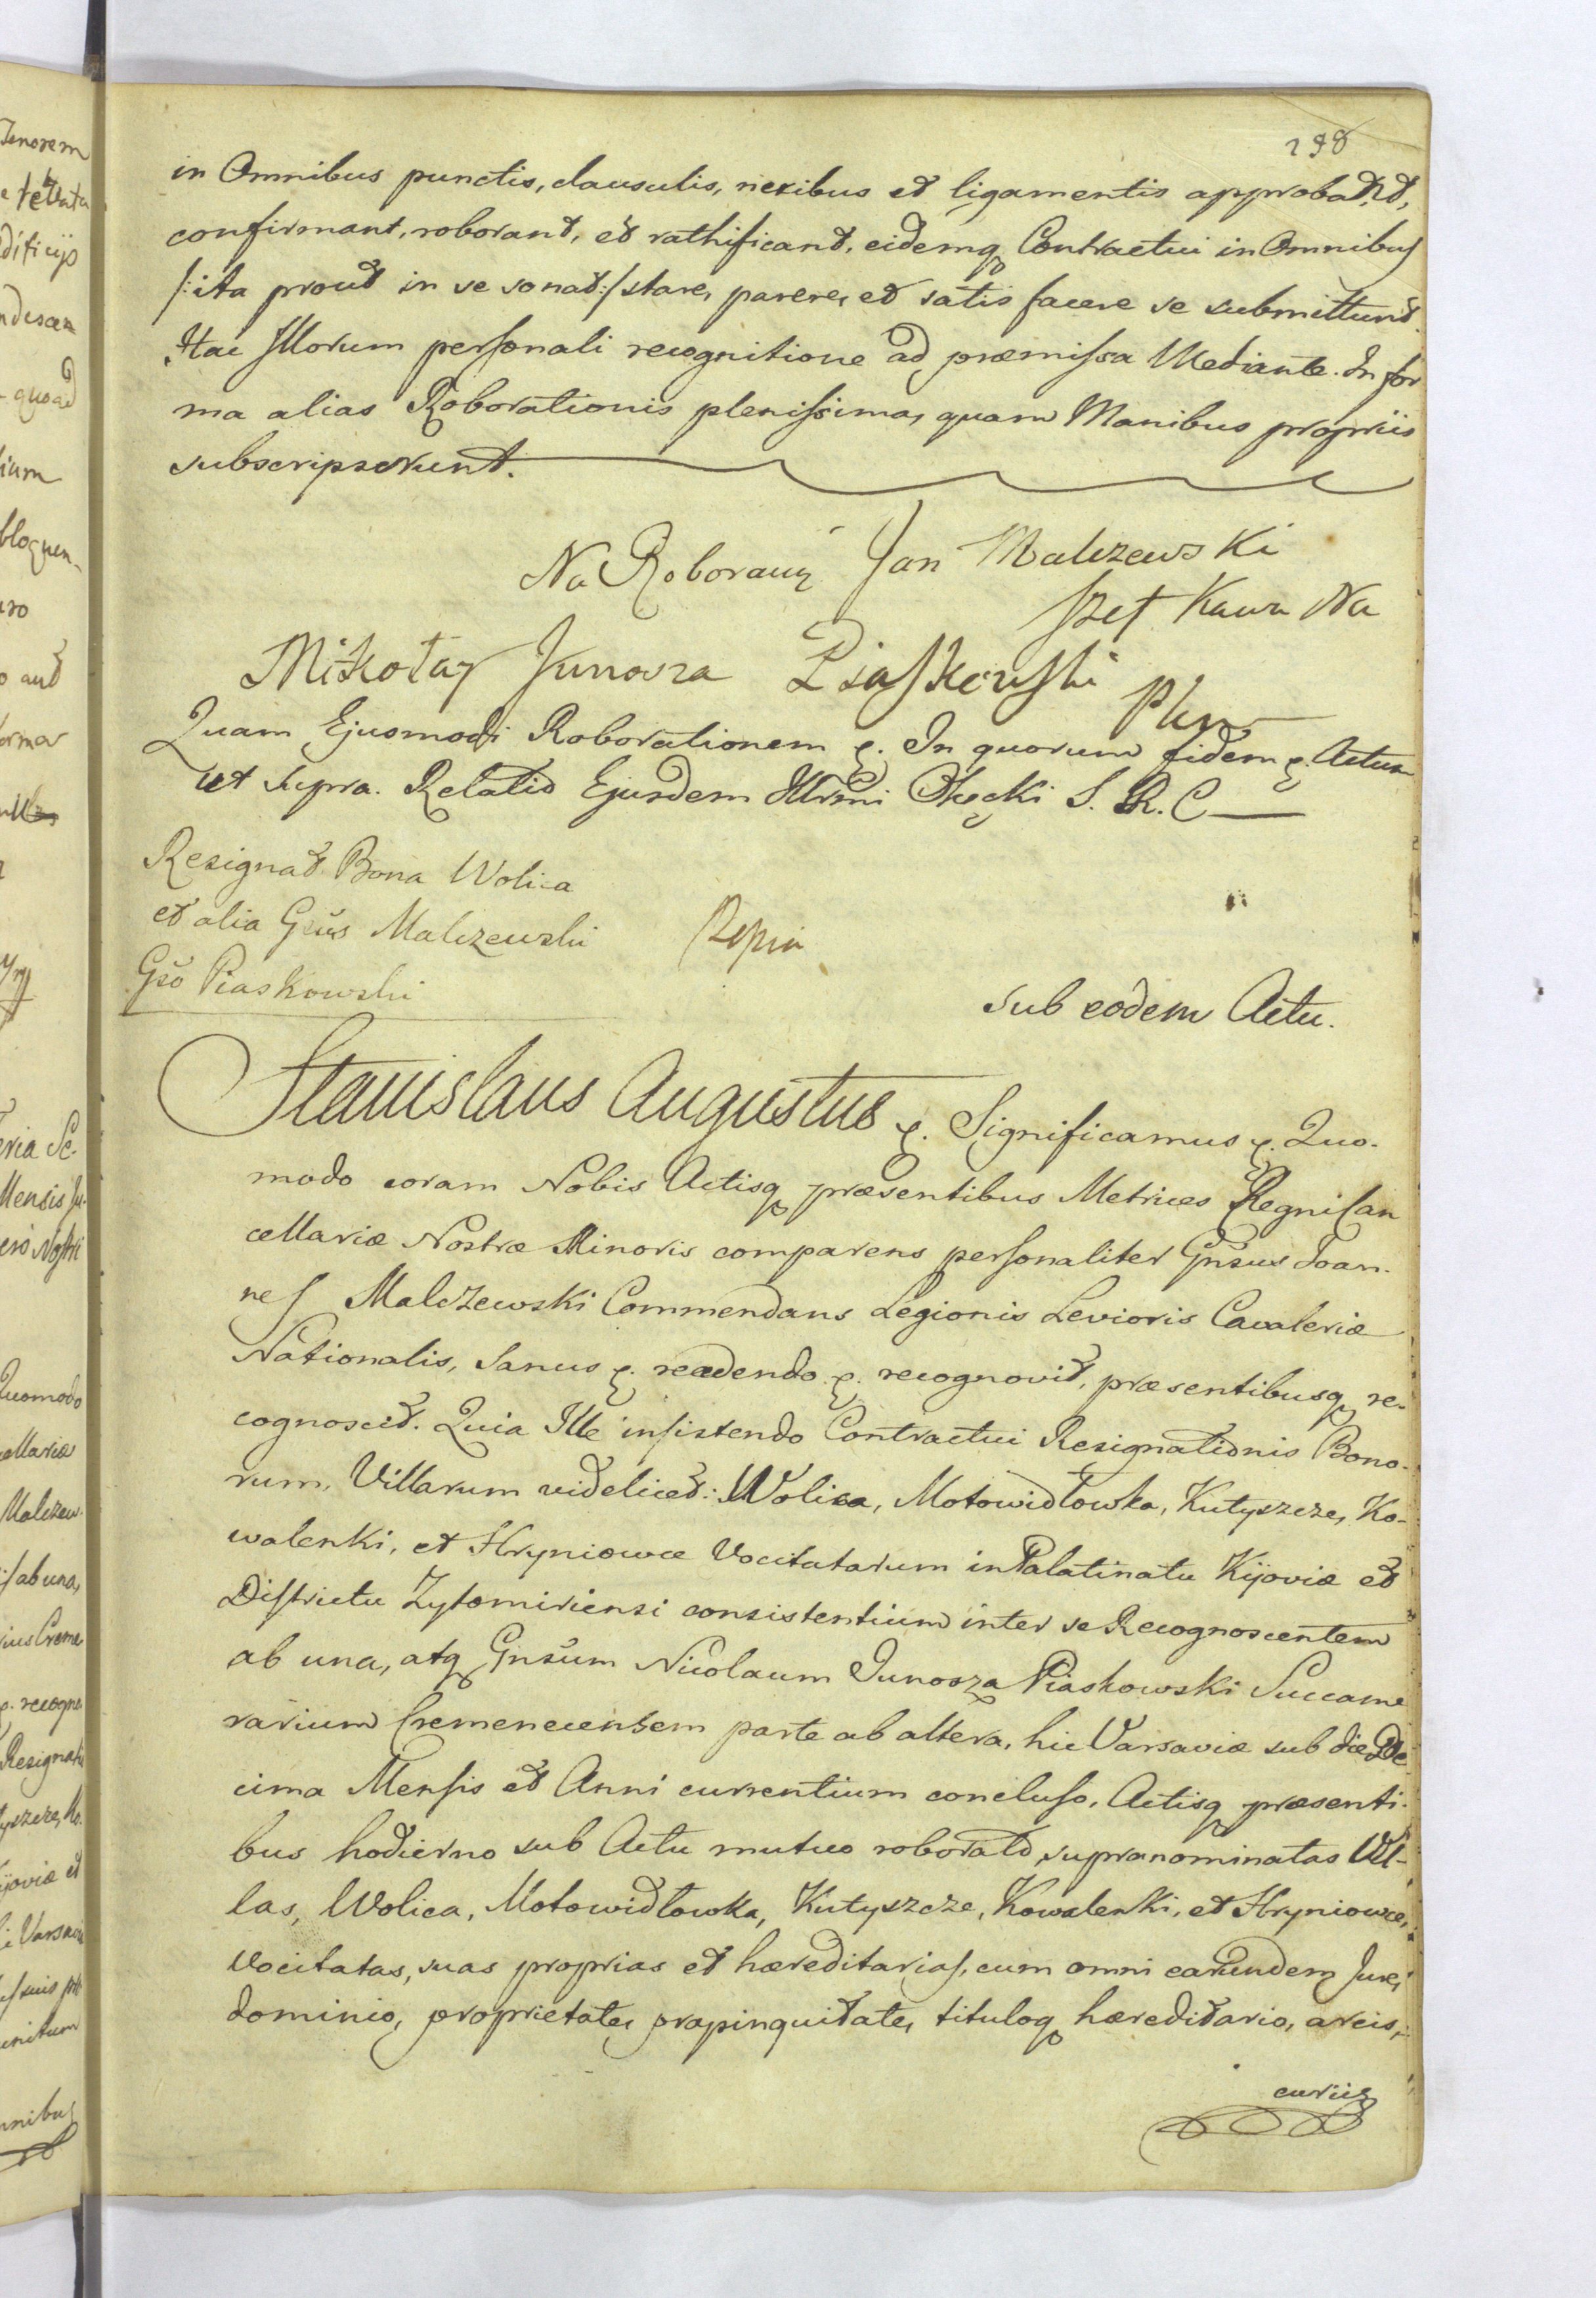 198
in Omnibus punctis, clausulis, nexibus et ligamentis approbant,
confirmant, roborant, et rathificant, eidemq Contractui in Omnibus
/:ita prout in se sonat:/ stare, parere, et satis facere se submittunt.
Hac Illorum personali recognitione ad præmissa Mediante. In for
ma alias Roborationis plenissima, quam Manibus propriis
subscripserunt.
Na Roboracyi Jan Malczewski
Szef Kawa Na
Mikołay Junosza Piaskowski
Pkrz
Quam Ejusmodi Roborationem &. In quorum fidem &. Actum
ut supra. Relatio Ejusdem Illrmi Okęcki S. R. C
Resignat Bona Wolica
et alia Gsus Malczewski
Gso Piaskowski
Sub eodem Actu.
Stanislaus Augustus &. Significamus &. Quo-
modo coram Nobis Actisq præsentibus Metrices Regni Can
cellariæ Nostræ Minoris comparens personaliter Gnsus Joan-
nes Malczewski Commendans Legionis Levioris Cavaleriæ
Nationalis, Sanus &. recedendo &. recognovit, præsentibusq re-
cognoscit. Quia Ille insistendo Contractui Resignationis Bono-
rum, Villarum videlicet: Wolica, Motowidłowka, Kutyszcze, Ko-
walenki, et Hryniowce Vocitatarum in Palatinatu Kijoviæ et
Districtu Zytomiriensi consistentium inter se Recognoscentem
ab una, atq Gnsum Nicolaum Junosza Piaskowski Succame
rarium Cremenecensem parte ab altera, hic Varsaviæ sub die De
cima Mensis et Anni currentium concluso, Actisq præsenti-
bus hodierno sub Actu mutuo roborato, supranominatas Vil-
las, Wolica, Motowidłowka, Kutyszcze, Kowalenki, et Hryniowce,
Vocitatas, suas proprias et hæreditarias, cum omni earundem Jure,
dominio, proprietate, propinquitate, tituloq hæreditario, areis,
curiis